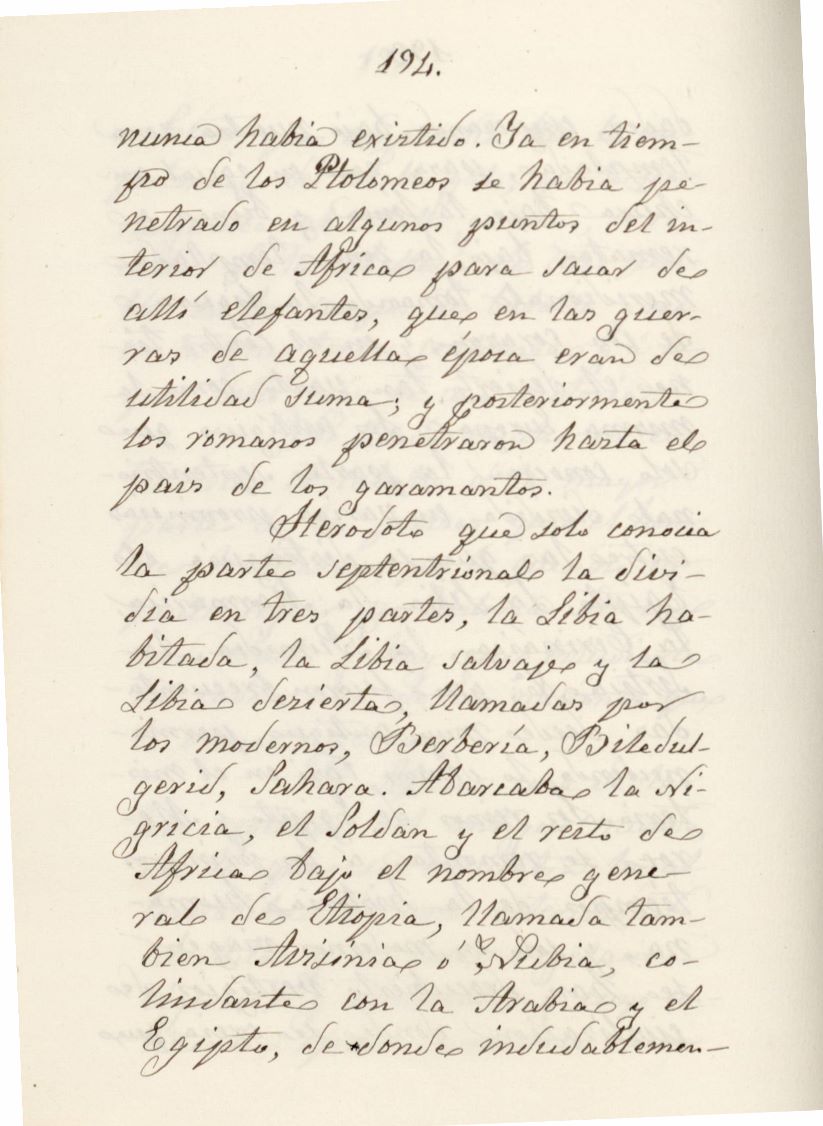 194.
nunca habia existido. Ya en tiem-
po de los Ptolomeos se habia pe-
netrado en algunos puntos del in-
terior de Africa para sacar de
allí elefantes, que en las guer-
ras de aquella época eran de
utilidad suma; y posteriormente
los romanos penetraron hasta el
pais de los garamantos.
Herodoto que solo conocia
la parte septentrional la divi-
dia en tres partes, la Libia ha-
bitada, la Libia salvaje y la
Libia desierta, llamadas por
los modernos, Berbería, Biledul-
gerid, Sahara. Abarcaba la Ni-
gricia, el Soldan y el resto de
Africa bajo el nombre gene-
ral de Etiopia, llamada tam-
bien Avisinia ó Nubia, co-
lindante con la Arabia y el
Egipto, de donde indudablemen-